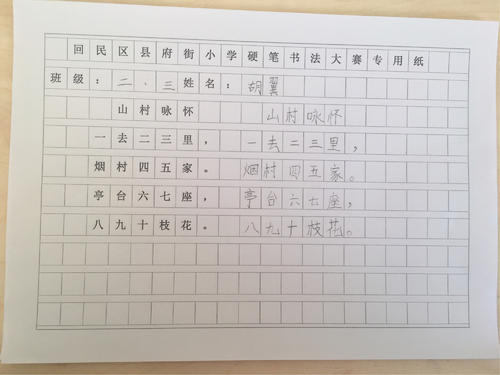 回民区县府街小学硬笔书法大赛专用纸
班级：二、三姓名：胡翼
山村咏怀 山村咏怀
一去二三里， 一去二三里，
烟村四五家。 烟村四五家。
亭台六七座， 亭台六七座，
八九十枝花。 八九十枝花。